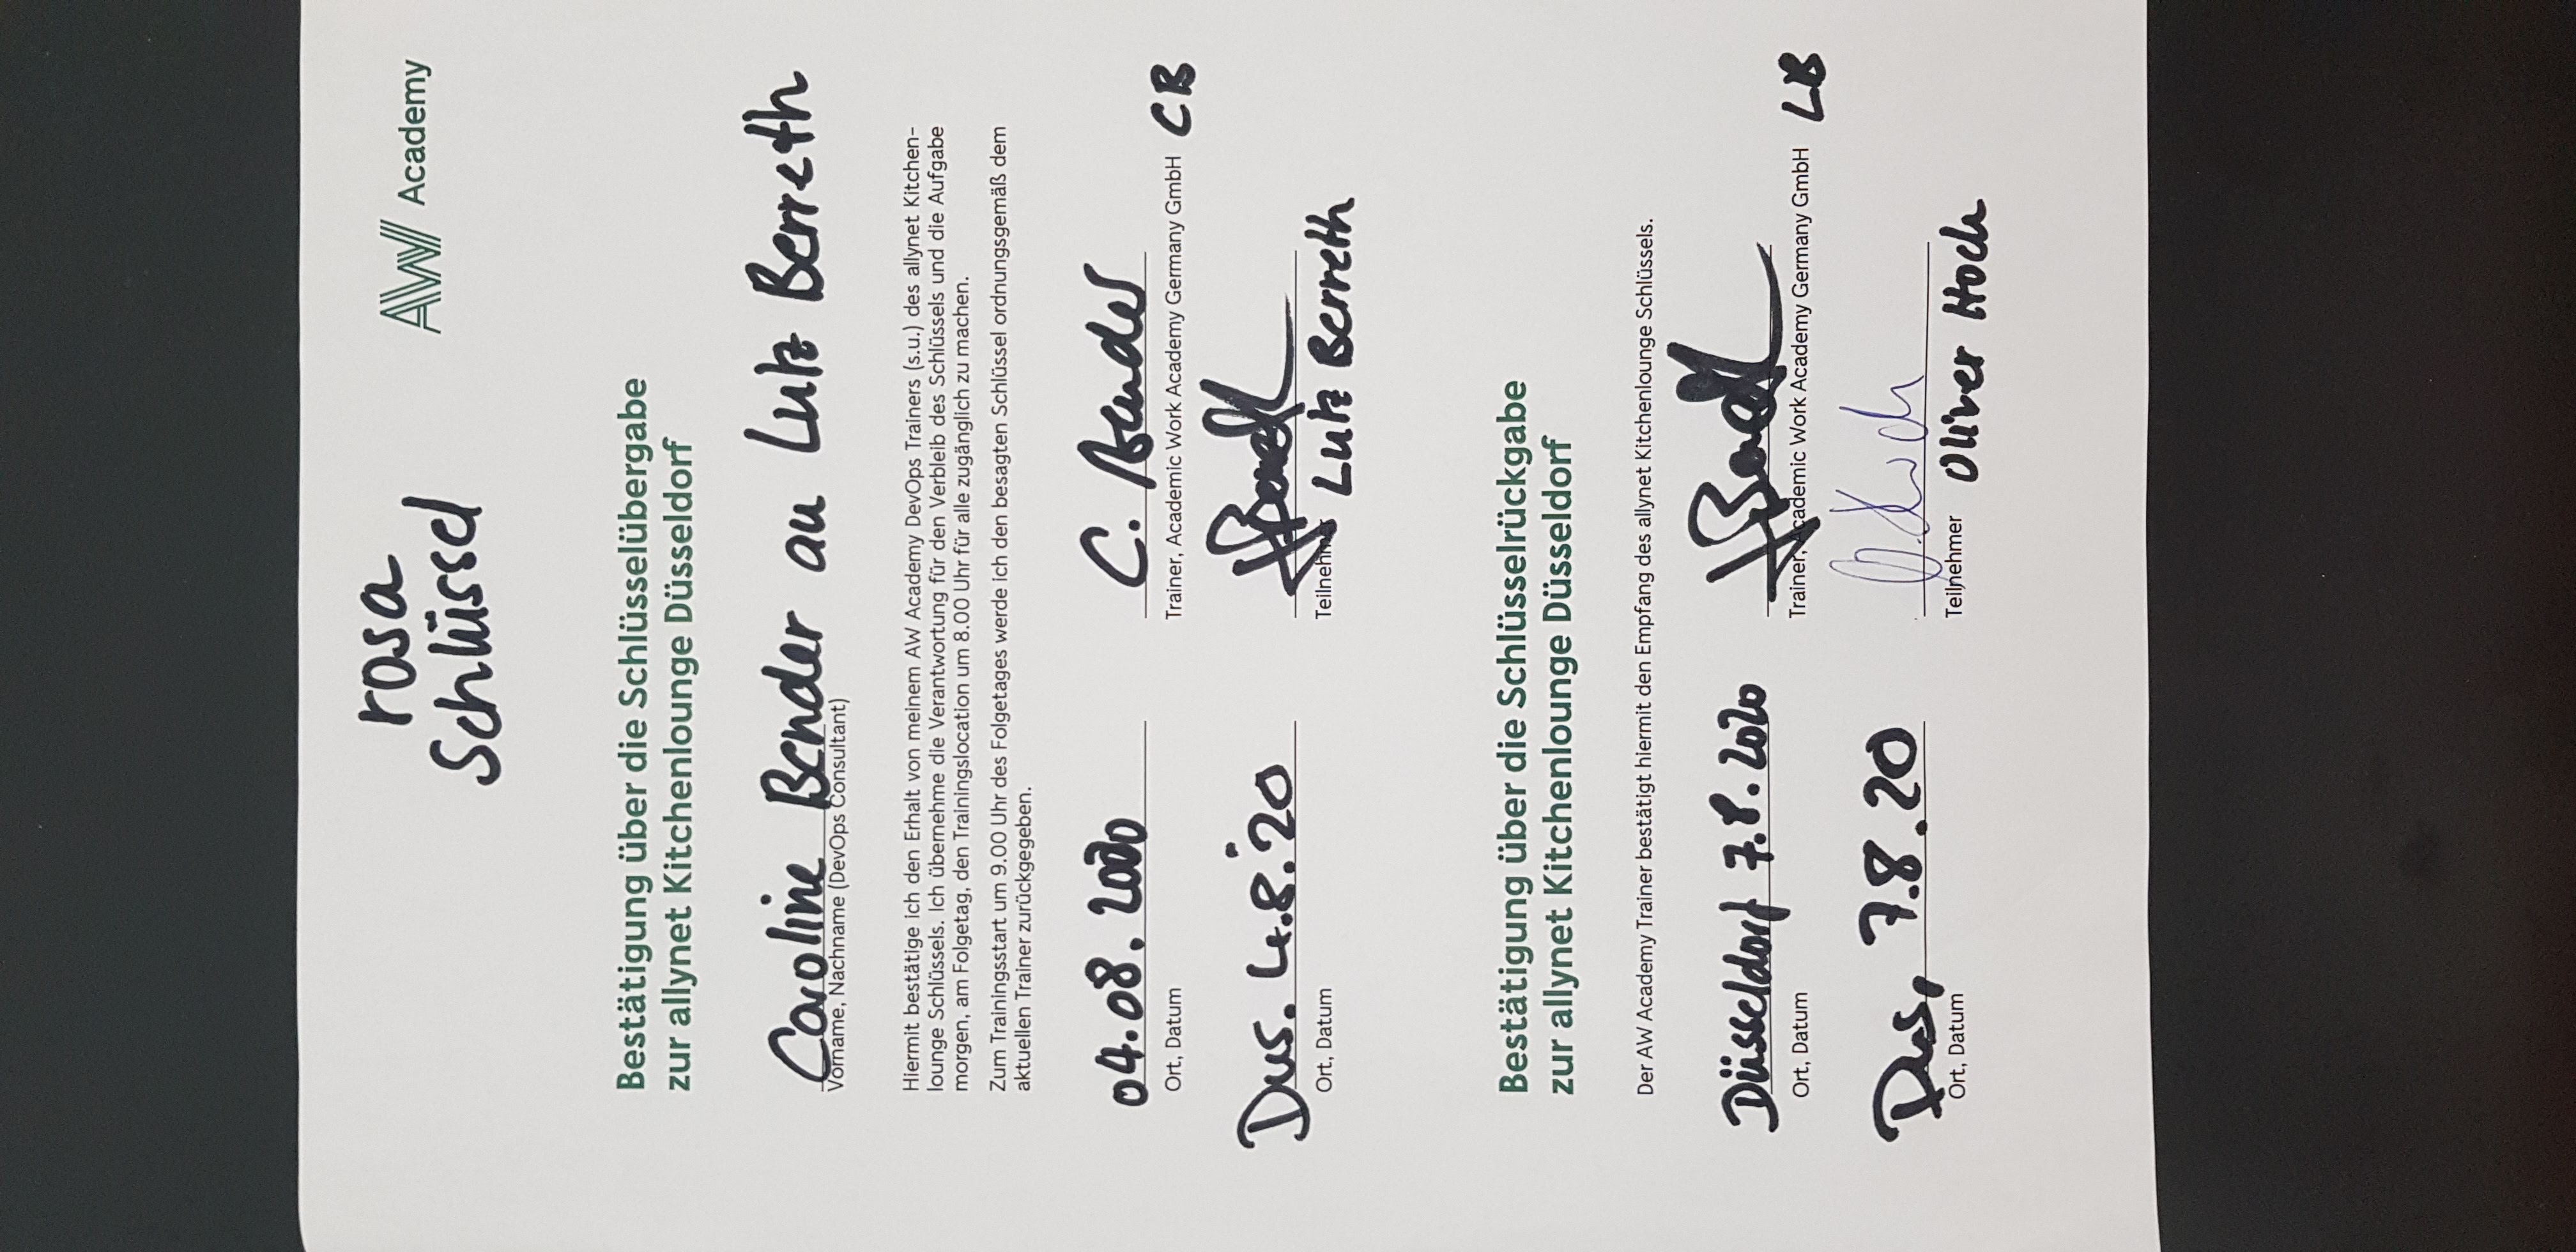 rosa
Schlüssel
AW Academy
Bestätigung über die Schlüsselübergabe
zur allynet Kitchenlounge Düsseldorf
Caroline Bender an Lutz Berreth
Vorname, Nachname (DevOps Consultant)
Hiermit bestätige ich den Erhalt von meinem AW Academy DevOps Trainers (s.u.) des allynet Kitchen-
lounge Schlüssels. Ich übernehme die Verantwortung für den Verbleib des Schlüssels und die Aufgabe
morgen, am Folgetag, den Trainingslocation um 8.00 Uhr für alle zugänglich zu machen.
Zum Trainingsstart um 9.00 Uhr des Folgetages werde ich den besagten Schlüssel ordnungsgemäß dem
aktuellen Trainer zurückgegeben.
04.08.2020 C. Bender
Ort, Datum Trainer, Academic Work Academy Germany GmbH CB
Dus. 4.8.20
Ort, Datum Teilnehmer Lutz Berreth
Bestätigung über die Schlüsselrückgabe
zur allynet Kitchenlounge Düsseldorf
Der AW Academy Trainer bestätigt hiermit den Empfang des allynet Kitchenlounge Schlüssels.
Düsseldorf 7.8.2020
Ort, Datum Trainer, Academic Work Academy Germany GmbH LB
Dus, 7.8.20
Ort, Datum Teilnehmer Oliver Hoch